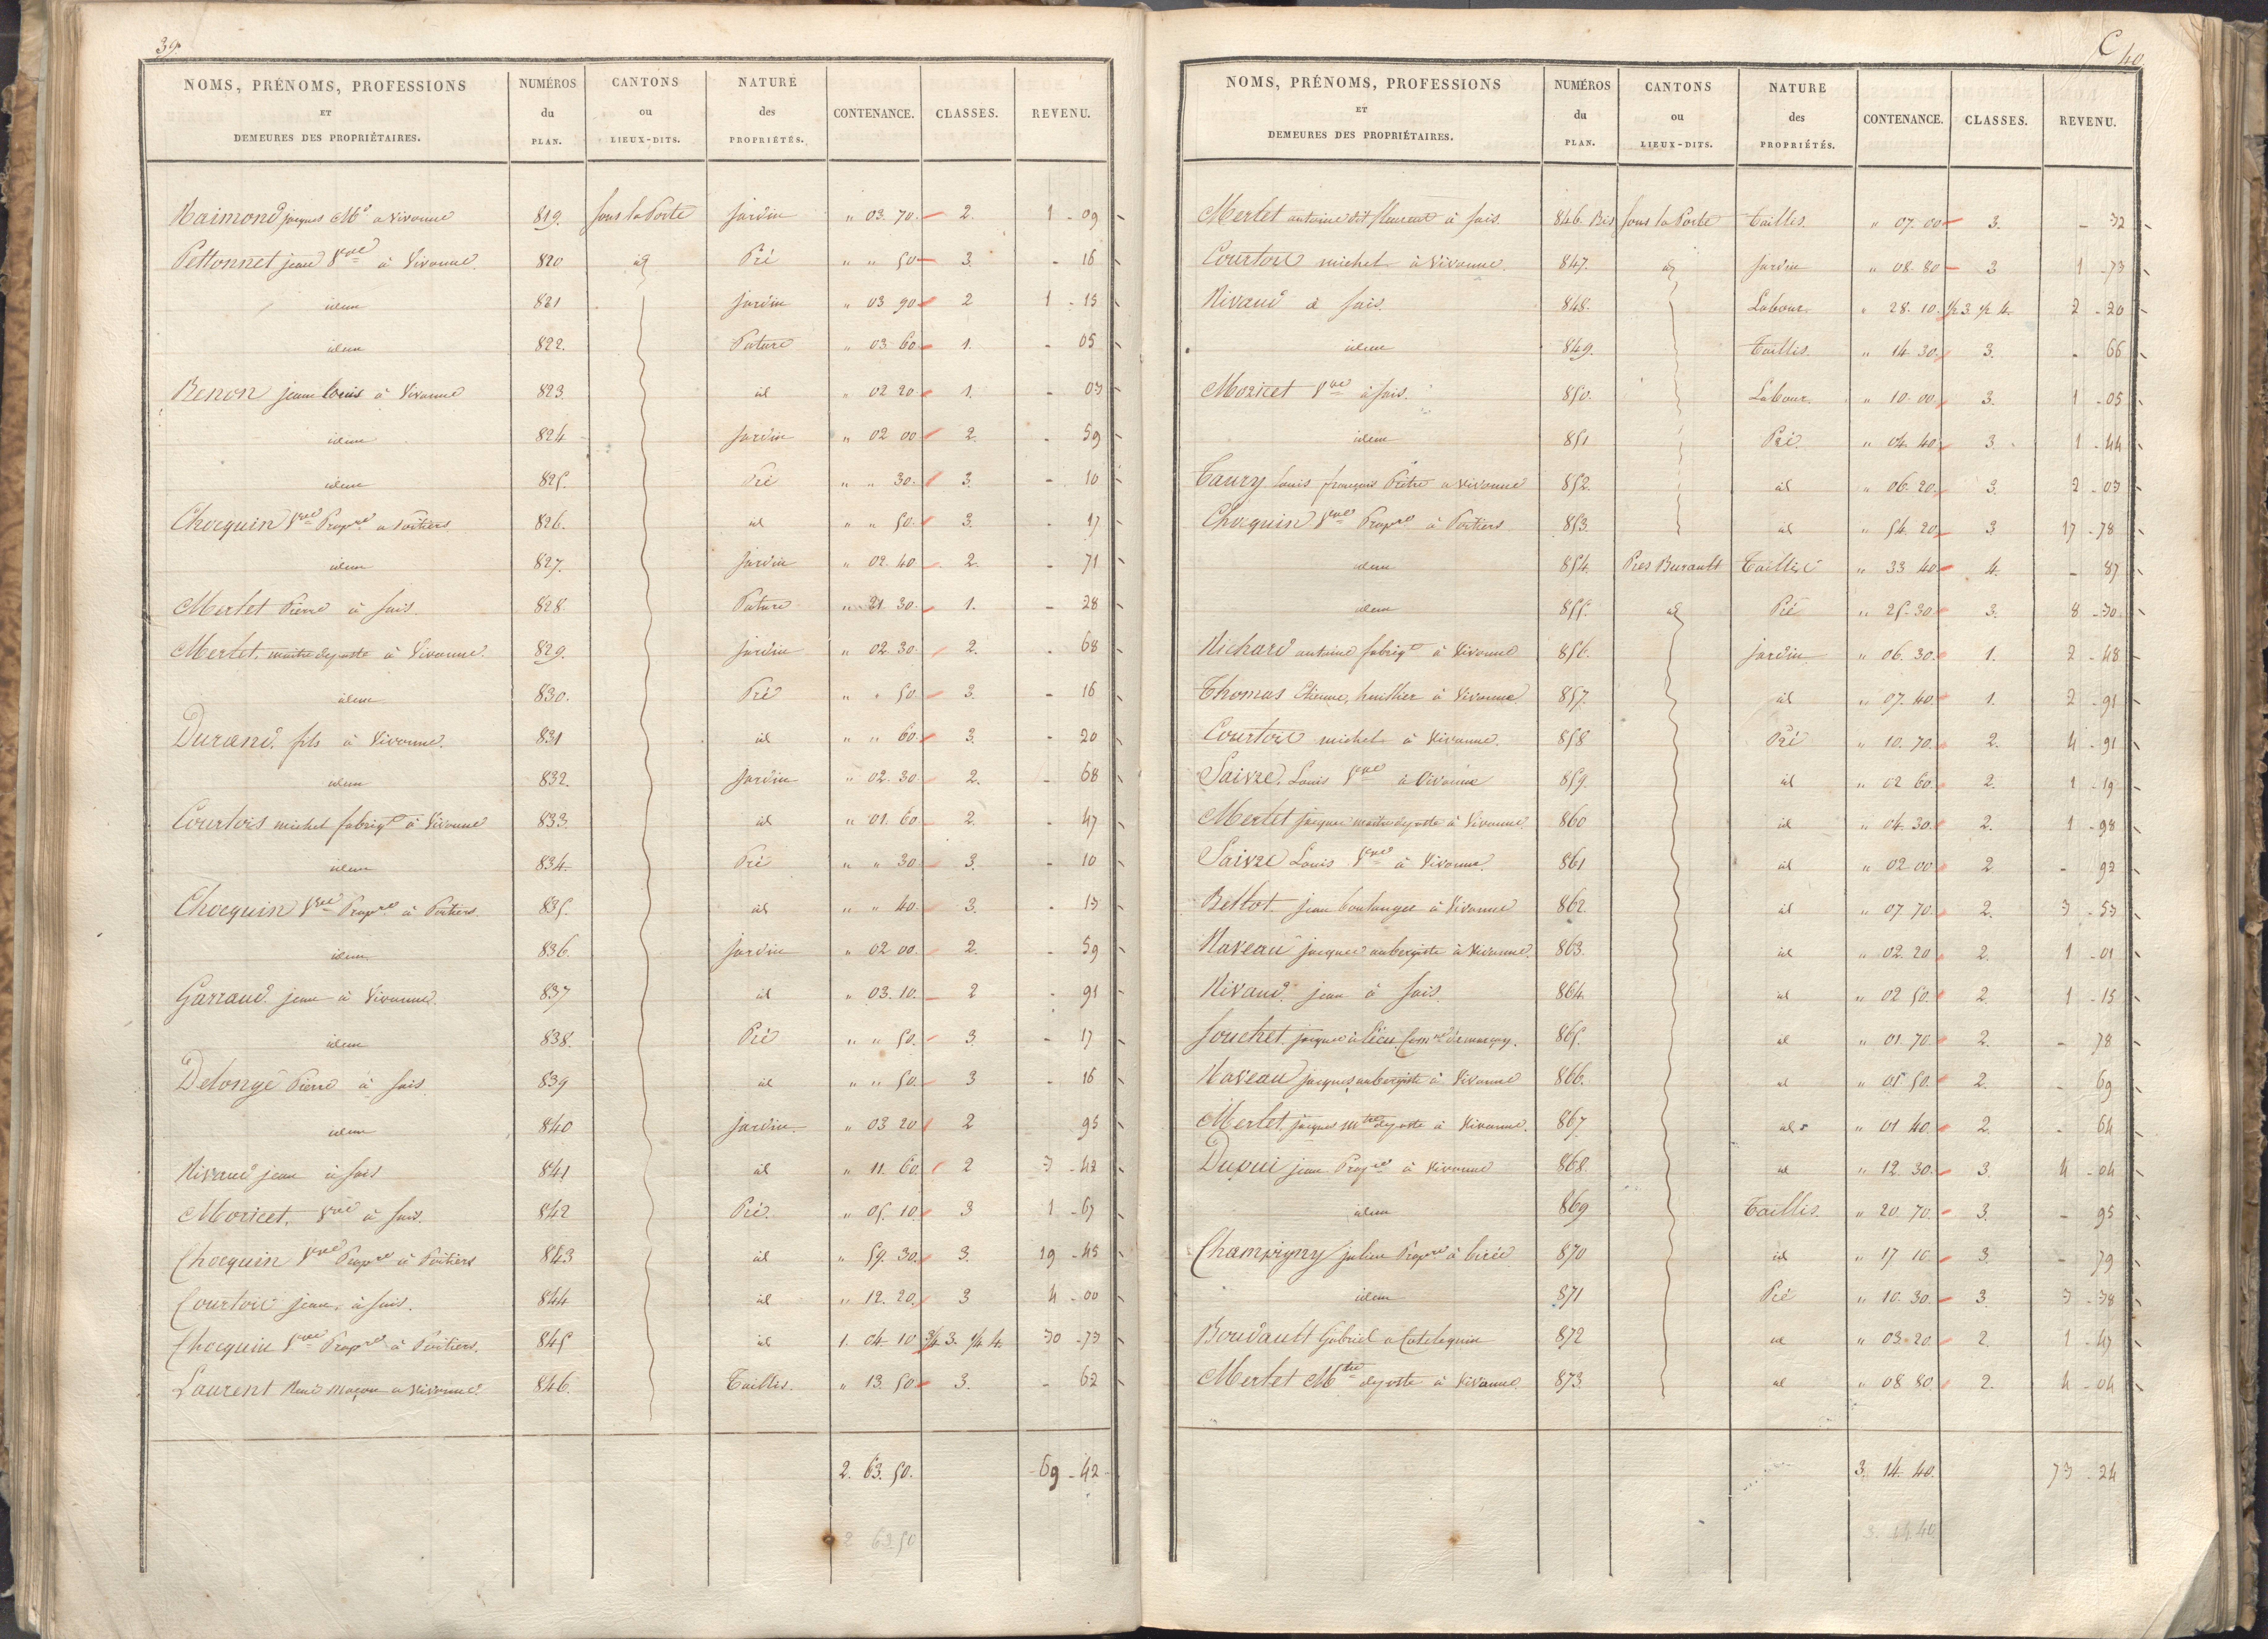 39
NOMS, PRÉNOMS, PROFESSIONS ET DEMEURES DES PROPRIÉTAIRES. NUMÉROS du PLAN. CANTONS ou LIEUX-DITS. NATURE des PROPRIÉTÉS. CONTENANCE. CLASSES. REVENU.
Raimond jacques Md a Vivonne 819. Sous la Porte jardin " 03. 70. 2. 1 - 09
Pettonnet jean Vve à Vivonne. 820 id Pré " " 50 3. - 16
idem 821 jardin " 03 90 2 1 - 15
idem 822. Pature " 03 60 1. - 05
Benon jean louis à Vivonne 823. id " 02 20 1. - 03
idem 824 jardin " 02 00 2. - 59
idem 825. Pré " " 30. 3. - 10
Chocquin Vve Propre a Poitiers 826. id " " 50. 3. - 17
idem 827. jardin " 02. 40 2. - 71
Merlet Pierre à Sais. 828 Pature " 21 30. 1. - 28
Merlet. maitre deposte à Vivonne. 829. jardin " 02 30 2. - 68
idem 830. Pré " " 50. 3. - 16
Durand. fils à Vivonne. 831 id " " 60. 3. - 20
idem 832. jardin " 02. 30. 2. - 68
Courtois michel fabriqt à Vivonne 833. id " 01. 60 2. - 47
idem 834. Pré " " 30 3. - 10
Chocquin Vve Propre à Poitiers. 835. id " " 40. 3. - 13
idem 836. jardin " 02 00. 2. - 59
Garraud jean à Vivonne. 837 id " 03. 10. 2 - 91
idem 838. Pré " " 50. 3. - 17
Delongé Pierre à Sais. 839 id " " 50. 3 - 16
idem 840 jardin. " 03 20 2 95
Rivaud jean à Sais 841 id " 11. 60 2 3 - 42
Moricet. Vve à Sais. 842 Pré. " 05. 10. 3 1 - 67
Chocquin Vve Propre à Poitiers 843 id " 59. 30. 3. 19 - 45
Courtois jean. à Sais. 844 id " 12. 20. 3 4 - 00
Chocquin Vve Propre à Poitiers. 845 id 1. 04. 10 3/4 3. 1/4 4. 30 - 73
Laurent René Maçon a Vivonne 846. Taillis. " 13. 50 3. - 62
2. 63. 50. 69 - 42
2 63.50
C 40.
NOMS, PRÉNOMS, PROFESSIONS ET DEMEURES DES PROPRIÉTAIRES. NUMÉROS du PLAN. CANTONS ou LIEUX-DITS. NATURE des PROPRIÉTÉS. CONTENANCE. CLASSES. REVENU.
Merlet antoine dit fleurent à Sais. 846. Bis Sous la Porte Taillis. " 07. 00 3. - 32
Courtois michel à Vivonne. 847. id jardin " 08. 80 3 1 - 73
Rivaud à Sais. 848. Labour. " 28. 10. 1/2 3 1/2 4. 2 - 20
idem 849. Taillis. " 14 30. 3. - 66
Moricet Vve à Sais. 850. Labour. " 10. 00 3. 1 - 05
idem 851 Pré. " 04. 40 3. 1 - 44
Taury louis françois Prêtre a Vivonne 852. id " 06. 20. 3. 2 - 03
Chocquin Vve Propre à Poitiers 853. id " 54. 20 3. 17 - 78
idem 854. Pres Burault Taillis " 33 40 4. - 87
idem 855. id Pré " 25. 30. 3. 8 - 30
Richard antoine fabriqt à Vivonne 856. jardin " 06. 30. 1. 2 - 48
Thomas Etienne, huissier à Vivonne 857. id " 07. 40. 1. 2 - 91
Courtois michel à Vivonne. 858 Pré " 10. 70. 2. 4 - 91
Saivre. Louis Vve à Vivonne 859. id " 02 60. 2. 1 - 19
Merlet jacques maitre deposte à Vivonne. 860 id " 04. 30. 2. 1 - 98
Saivre Louis Vve à Vivonne. 861 id " 02 00 2 - 92
Bellot jean boulanger à Vivonne 862. id " 07. 70. 2. 3 - 53
Naveau jacques aubergiste à Vivonne. 863. id " 02. 20 2. 1 - 01
Rivaud. jean à Sais. 864. id " 02 50. 2. 1 - 15
Souchet. jacques à Comne de marçay. 865. id " 01. 70 2. - 78
Naveau jacques aubergiste à Vivonne 866. id " 01 50. 2. - 69
Merlet. jacques mtre deposte à Vivonne. 867 id " 01 40. 2. - 64
Dupui jean Propre à Vivonne 868. id " 12. 30. 3. 4 - 04
idem 869 Taillis. " 20. 70. 3. - 95
Champigny julien Propre à 870 id " 17 10 3. - 79
idem 871 Pré " 10. 30. 3. 3 - 38
Boudault Gabriel a 872 id " 03. 20. 2. 1 - 47
Merlet Mtre deposte à Vivonne. 873. id " 08 80. 2. 4 - 04
3. 14. 40. 73 - 24
3. 14.40